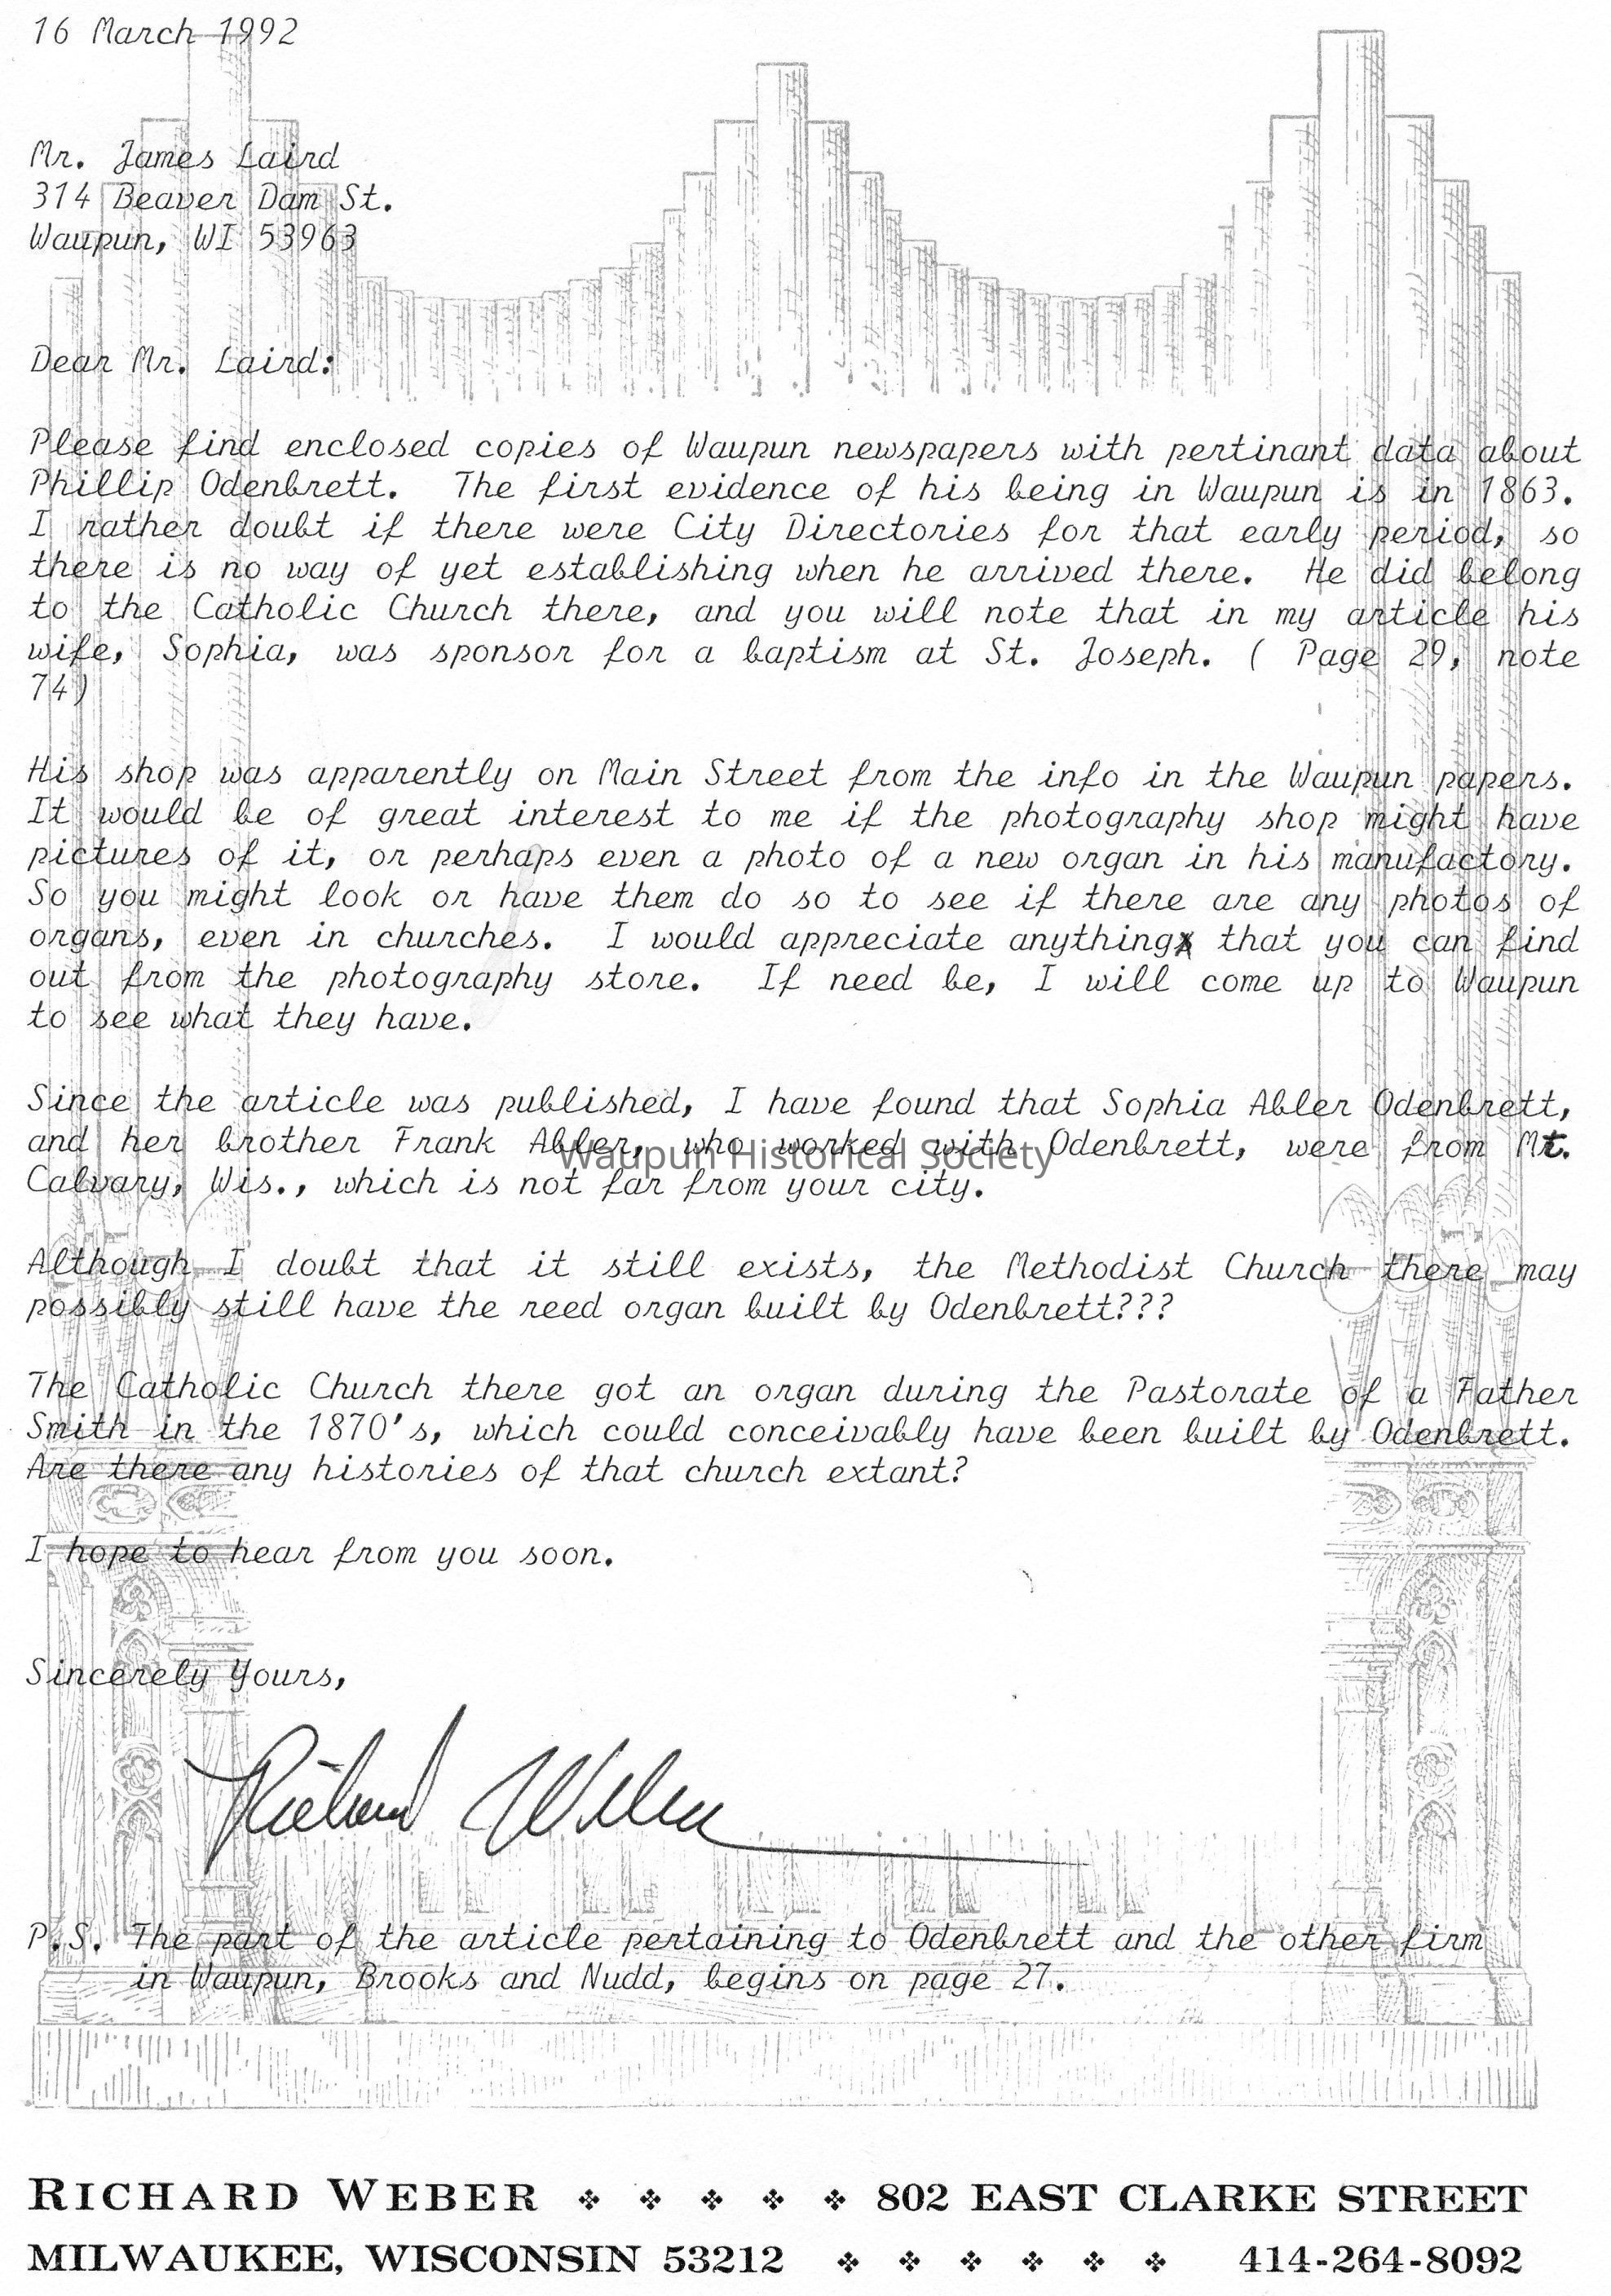 16 March 1992
Mr. James Laird
314 Beaver Dam St.
Waupun, WI 53963
Dear Mr. Laird:
Please find enclosed copies of Waupun newspapers with pertinant data about
Phillip Odenbrett. The first evidence of his being in Waupun is in 1863.
I rather doubt if there were City Directories for that early period, so
there is no way of yet establishing when he arrived there. He did belong
to the Catholic Church there, and you will note that in my article his
wife, Sophia, was sponsor for a baptism at St. Joseph. ( Page 29, note
74)
His shop was apparently on Main Street from the info in the Waupun papers.
It would be of great interest to me if the photography shop might have
pictures of it, or perhaps even a photo of a new organ in his manufactory.
So you might look or have them do so to see if there are any photos of
organs, even in churches. I would appreciate anything that you can find
out from the photography store. If need be, I will come up to Waupun
to see what they have.
Since the article was published, I have found that Sophia Abler Odenbrett,
and her brother Frank Abler, who worked with Odenbrett, were from Mt.
Waupun Historical Society
Calvary, Wis., which is not far from your city.
Although I doubt that it still exists, the Methodist Church there may
possibly still have the reed organ built by Odenbrett???
The Catholic Church there got an organ during the Pastorate of a Father
Smith in the 1870's, which could conceivably have been built by Odenbrett.
Are there any histories of that church extant?
I hope to hear from you soon.
Sincerely Yours,
Richard Weber
P.S. The part of the article pertaining to Odenbrett and the other firm
in Waupun, Brooks and Nudd, begins on page 27.
RICHARD WEBER ❖ ❖ ❖ ❖ ❖ 802 EAST CLARKE STREET
MILWAUKEE, WISCONSIN 53212 ❖ ❖ ❖ ❖ ❖ ❖ 414-264-8092